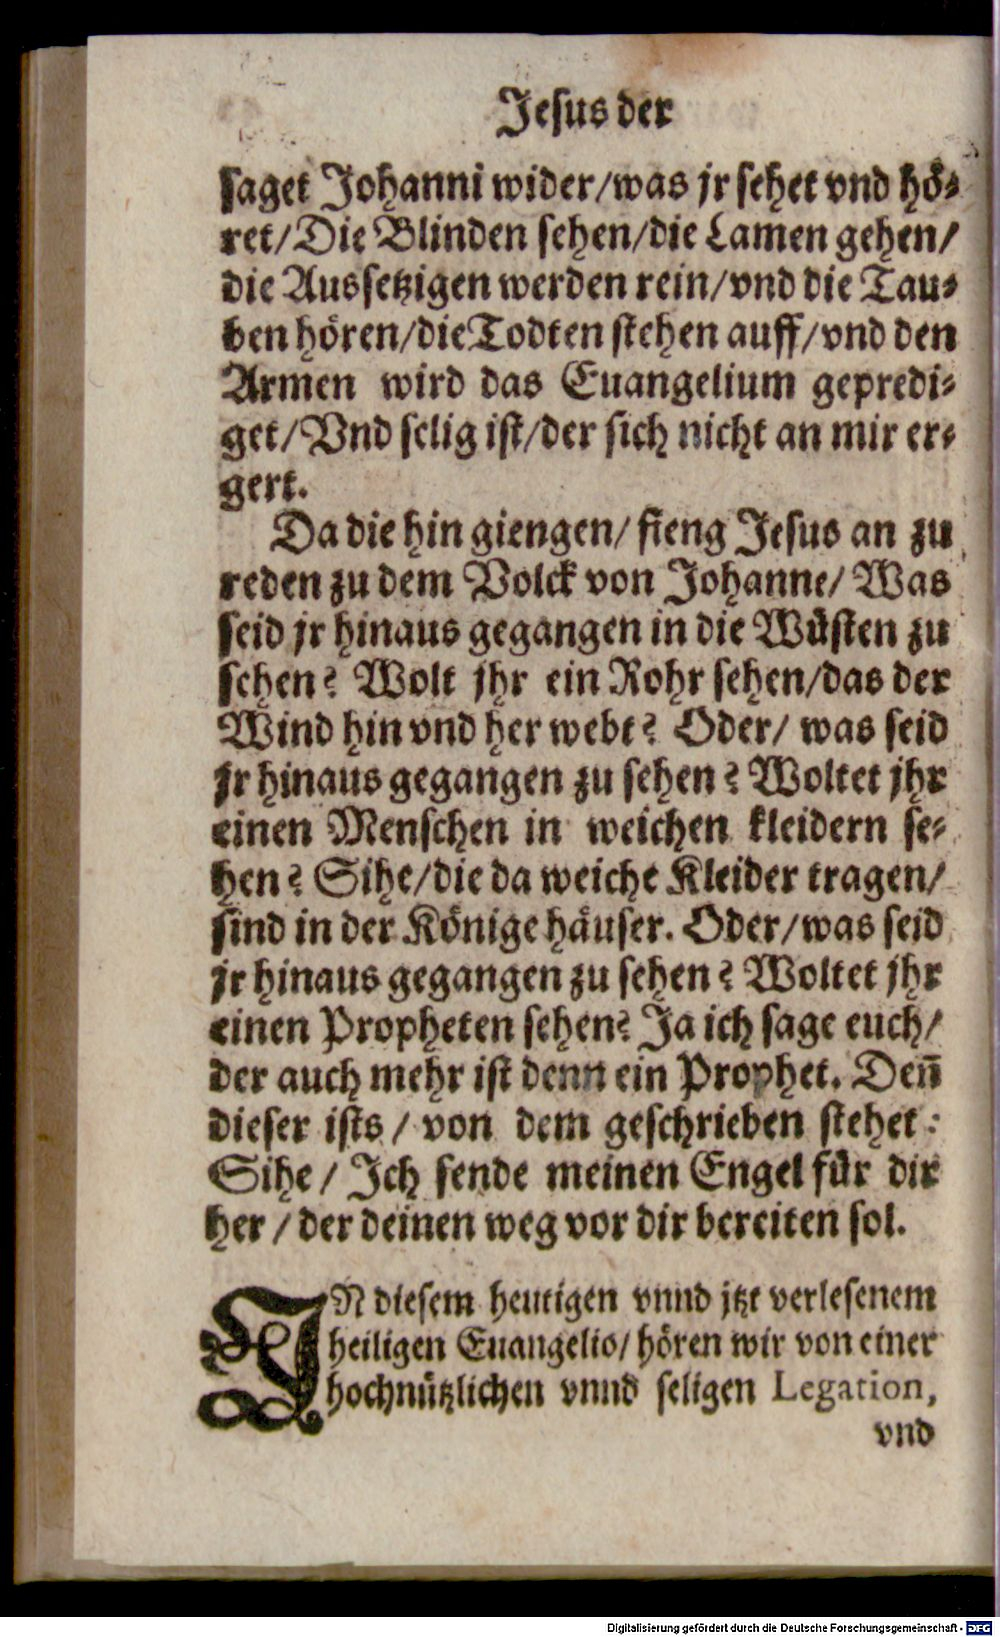 Jesus der
saget Johanni wider/was jr sehet vnd hö-
ret/Die Blinden sehen/die Lamen gehen/
die Aussetzigen werden rein/vnd die Tau-
ben hören/die Todten stehen auff/vnd den
Armen wird das Euangelium gepredi-
get/Vnd selig ist/der sich nicht an mir er-
gert.
Da die hin giengen/ fieng Jesus an zu
reden zu dem Volck von Johanne/ Was
seid jr hinaus gegangen in die Wüsten zu
sehen? Wolt jhr ein Rohr sehen/das der
Wind hin vnd her webt? Oder/ was seid
jr hinaus gegangen zu sehen? Woltet jhr
einen Menschen in weichen kleidern se-
hen? Sihe/die da weiche Kleider tragen/
sind in der Könige häuser. Oder/was seid
jr hinaus gegangen zu sehen? Woltet jhr
einen Propheten sehen? Ja ich sage euch/
der auch mehr ist denn ein Prophet. Den̄
dieser ists / von dem geschrieben stehet:
Sihe / Ich sende meinen Engel für dir
her / der deinen weg vor dir bereiten sol.
IN diesem heutigen vnnd jtzt verlesenem
heiligen Euangelio/ hören wir von einer
hochnützlichen vnnd seligen Legation,
vnd
Digitalisierung gefördert durch die Deutsche Forschungsgemeinschaft - DFG